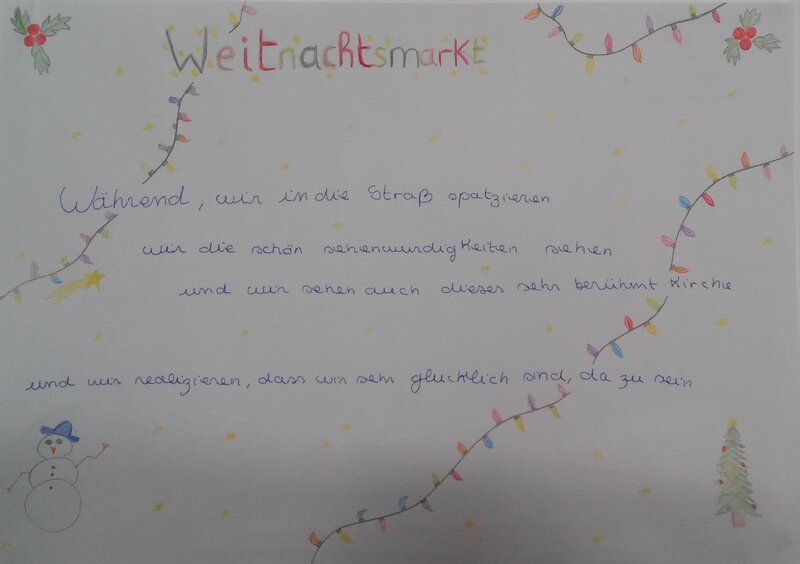 Weitnachtsmarkt
Während, wir in die Straß spatzieren
wir die schön sehenwurdigkeiten sehen
und wir sehen auch dieses sehr berühmt Kirche
und wir realizieren, dass wir sehr glucklich sind, da zu sein